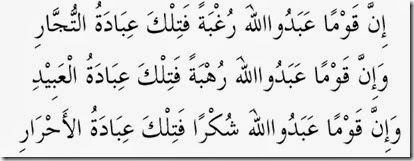 إِنَّ قَوْمًا عَبَدُوا الله رُغْبَةً فَتِلْكَ عِبَادَةُ التُّجَّارِ
وَإِنَّ قَوْمًا عَبَدُوا الله رُهْبَةً فَتِلْكَ عِبَادَةُ الْعَبِيْدِ
وَإِنَّ قَوْمًا عَبَدُوا الله شُكْرًا فَتِلْكَ عِبَادَةُ الأَحْرَارِ